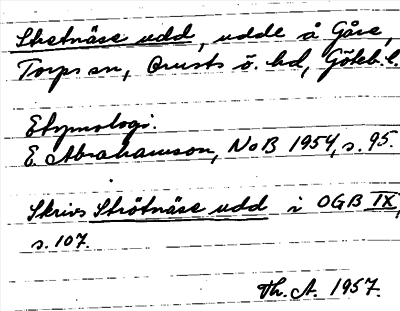 Sketnäse udd, udde å Gåse,
Torps sn, Orusts ö. hd, Göteb. l.
Etymologi.
E. Abrahamson, NoB 1954, s. 95.
Skrivs Strötnäse udd i OGB IX,
s. 107.
Th. A. 1957.